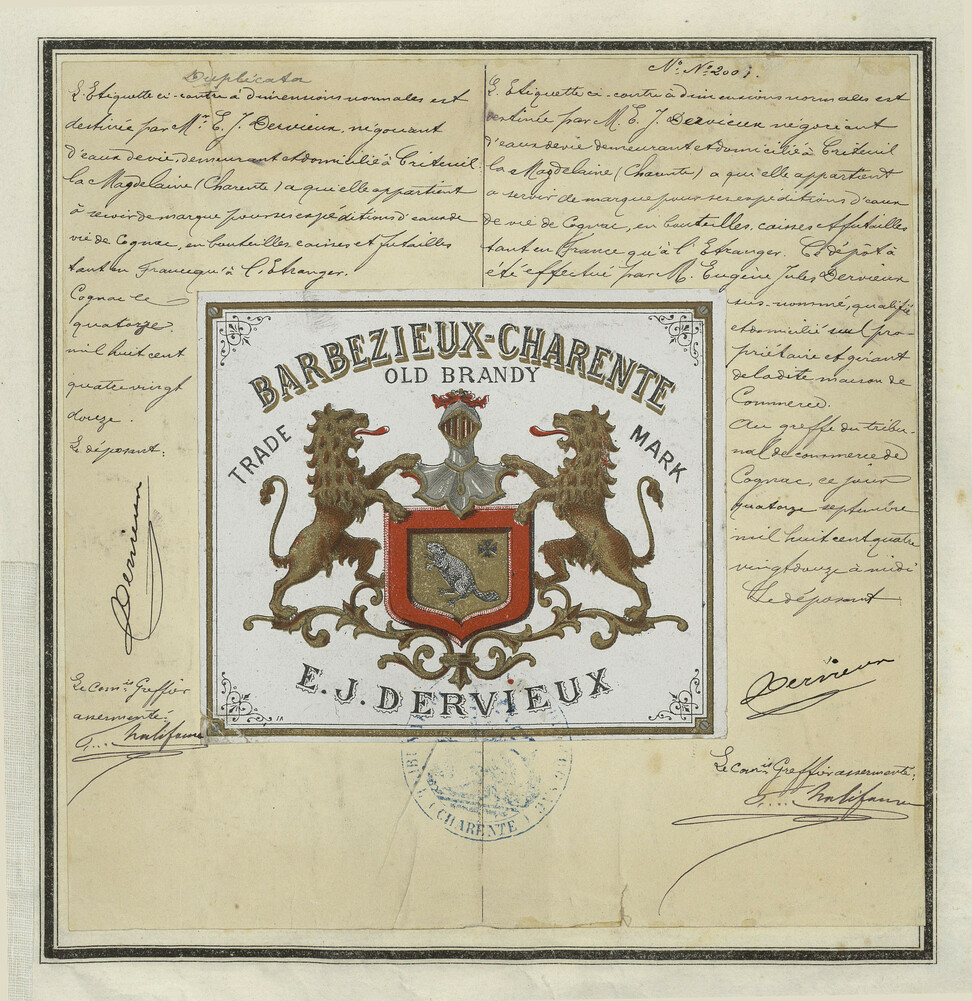 Duplicata
L'Etiquette ci-contre à dimensions normales est
destinée par Mr. E. J. Dervieux, négociant
d'eaux de vie, demeurant et domicilié à Criteuil
la Magdelaine (Charente) a qui elle appartient
à servir de marque pour ses expéditions d'eaux de
vie de Cognac, en bouteilles, caisses et futailles
tant en France qu'à l'Etranger.
Cognac le
quatorze
mil huit cent
quatre vingt
douze.
Le déposant:
Dervieux
Le comis Greffier
assermenté:
No. No. 2001.
L'Etiquette ci-contre à dimensions normales est
destinée par M. E. J. Dervieux négociant
d'eaux de vie demeurant et domicilié à Criteuil
la Magdelaine (Charente) a qui elle appartient
a servir de marque pour ses expéditions d'eaux
de vie de Cognac, en bouteilles, caisses et futailles
tant en France qu'à l'Etranger. Ce dépôt à
été effectué par M. Eugène Jules Dervieux
sus-nommé, qualifié
et domicilié seul pro-
priétaire et gérant
de la dite maison de
Commerce.
Au greffe du tribu-
nal de commerce de
Cognac, ce jour
quatorze septembre
mil huit cent quatre
vingt douze à midi
Le déposant
Dervieux
Le comis Greffier assermenté:
BARBEZIEUX-CHARENTE
OLD BRANDY
TRADE MARK
E. J. DERVIEUX
(CHARENTE)